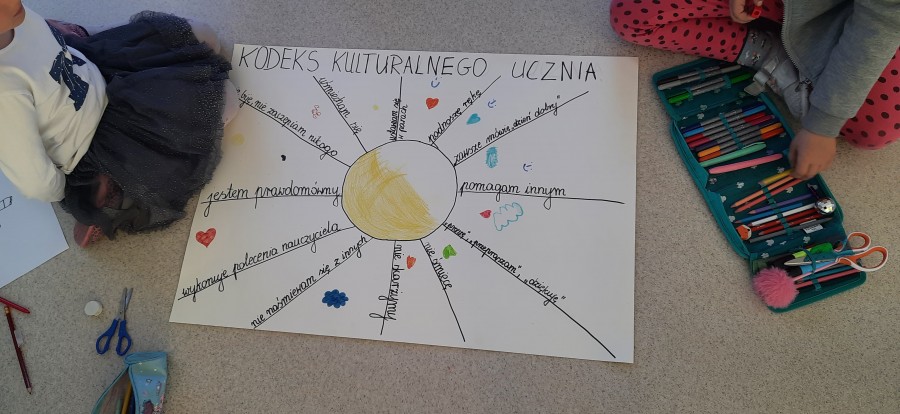 KODEKS KULTURALNEGO UCZNIA
nie zaczepiam nikogo
uśmiecham się
ustawiam się
w parach
podnoszę rękę
zawsze mówię „dzień dobry"
jestem prawdomówny
pomagam innym
wykonuję polecenia nauczyciela
nie naśmiewam się z innych
nie skarżymy
nie śmiecę
„przepraszam", „dziękuję"